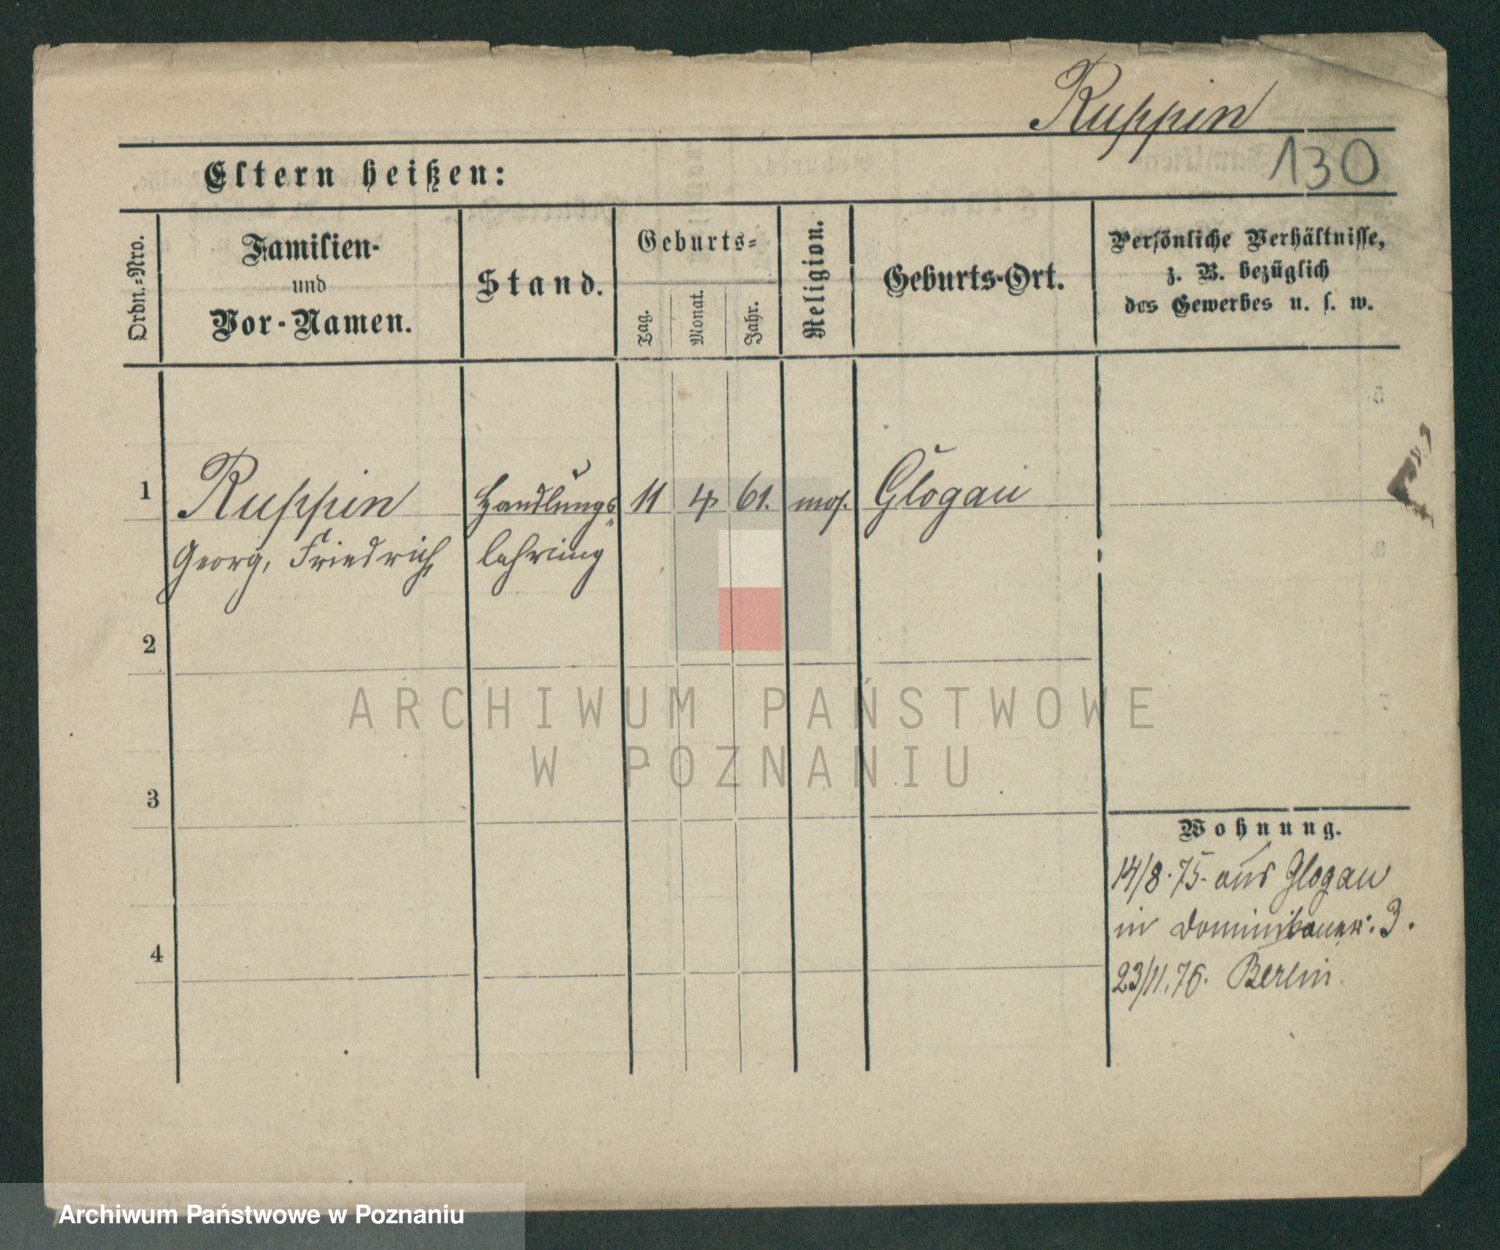 Ruppin
130
Eltern heißen:
Ordn.-Nro.
Familien-
und
Vor-Namen.
Stand.
Geburts-
Tag.
Monat.
Jahr.
Religion.
Geburts-Ort.
Persönliche Verhältnisse,
z. B. bezüglich
des Gewerbes u. s. w.
1
Ruppin
Georg, Friedrich
Handlungs-
lehrling
11
4
61.
mos.
Glogau
2
3
4
Wohnung.
14/8. 75. aus Glogau
in Dominikaner: 3.
23/11. 76. Berlin.
ARCHIWUM PAŃSTWOWE
W POZNANIU
Archiwum Państwowe w Poznaniu